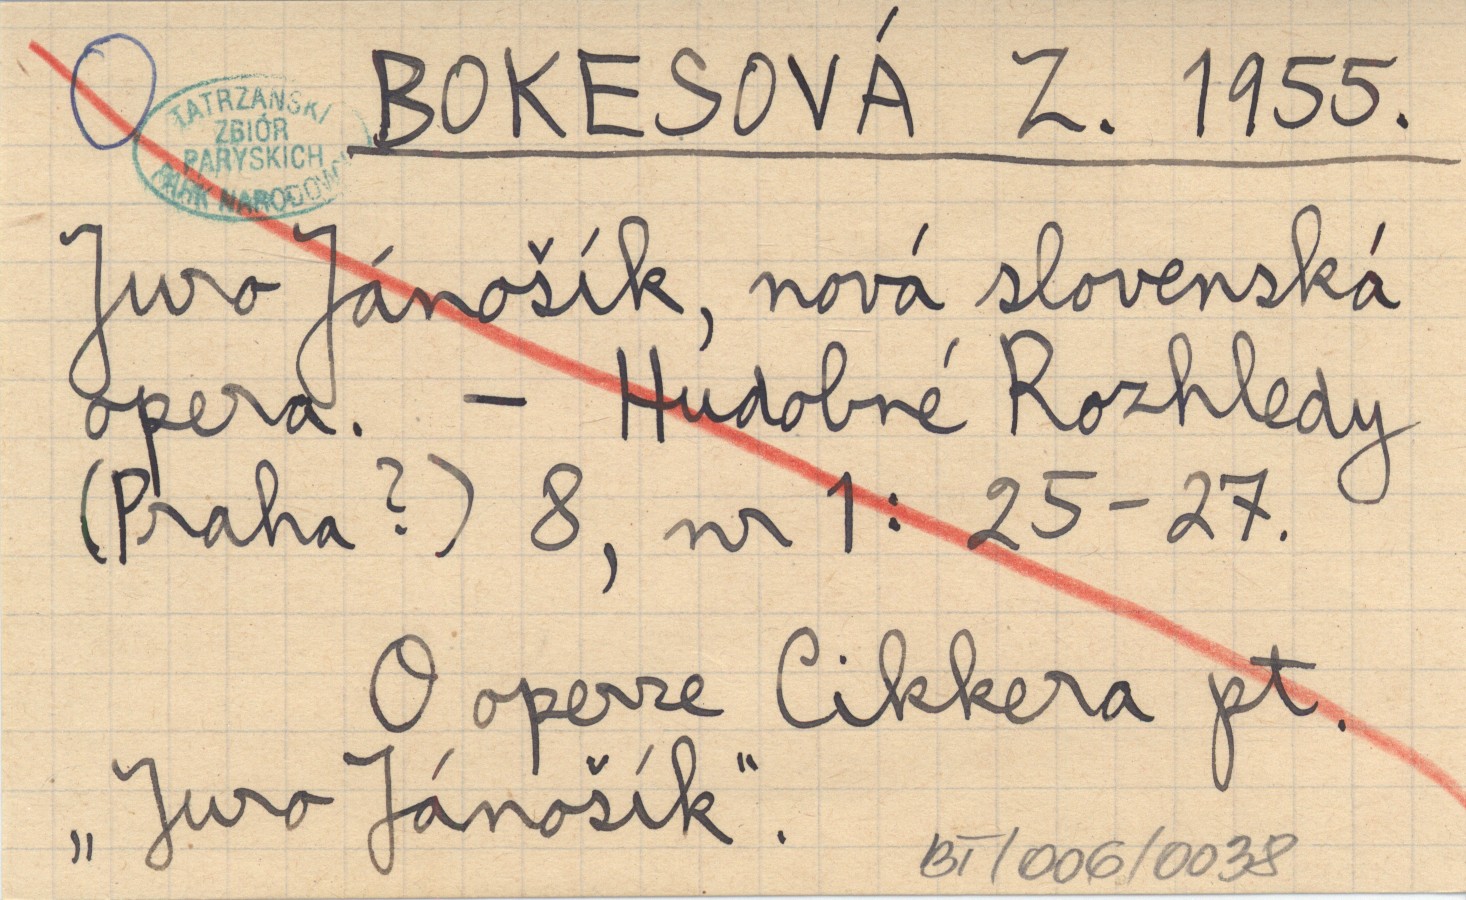 BOKESOVÁ Z. 1955.
TATRZAŃSKI
ZBIÓR
PARYSKICH
PARK NARODOWY
Juro Jánošík, nová slovenská
opera. – Hudobné Rozhledy
(Praha?) 8, nr 1: 25-27.
O operze Cikkera pt.
„Juro Jánošík".
BT/006/0038